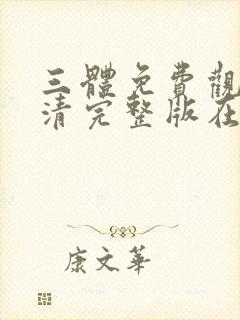 三體免費觀
清完整版在
康文華